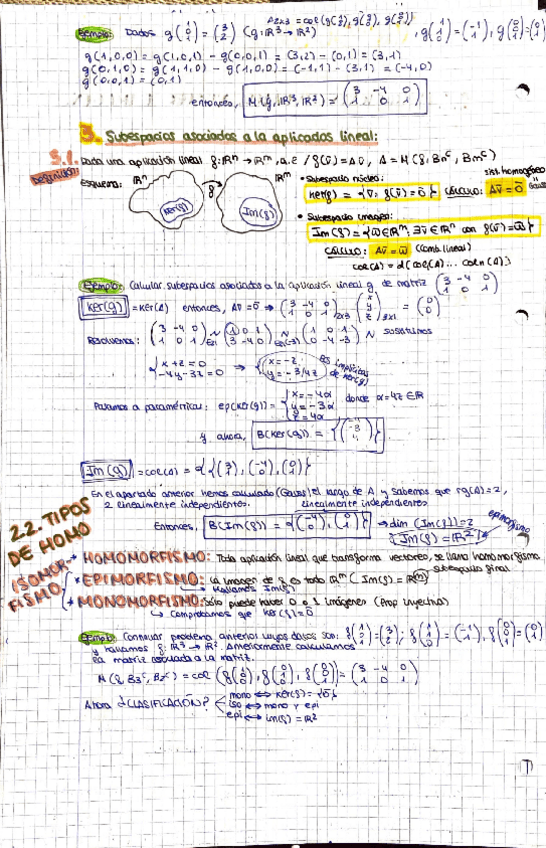 Ejemplo: Dados g(1 0 1) = (3 2) (g: ℝ³ → ℝ²) , g(1 1 0) = (-1 1), g(0 0 1) = (0 1)
A2x3 = col(g(1 0 0), g(0 1 0), g(0 0 1))
g(1,0,0) = g(1,0,1) - g(0,0,1) = (3,2) - (0,1) = (3,1)
g(0,1,0) = g(1,1,0) - g(1,0,0) = (-1,1) - (3,1) = (-4,0)
g(0,0,1) = (0,1)
entonces, M(g, ℝ³, ℝ²) = (3 -4 0 / 1 0 1)
3. Subespacios asociados a la aplicados lineal:
3.1. Dada una aplicación lineal g: ℝⁿ → ℝᵐ, q.e / g(v̄) = Av̄, A = M(g, Bnᶜ, Bmᶜ)
Definición:
Esquema: ℝⁿ g ℝᵐ
Ker(g) Im(g)
• Subespacio núcleo:
Ker(g) = {v̄: g(v̄) = ō} CÁLCULO: Av̄ = ō
sist. homogéneo
Gauss
• Subespacio imagen:
Im(g) = {w̄ ∈ ℝᵐ; ∃v̄ ∈ ℝⁿ con g(v̄) = w̄}
CÁLCULO: Av̄ = w̄ (comb. lineal)
col(A) = {col1(A) ... coln(A)}
Ejemplo: Calcular subespacios asociados a la aplicación lineal g de matriz (3 -4 0 / 1 0 1)
Ker(g) = Ker(A) entonces, Av̄ = ō → (3 -4 0 / 1 0 1)2x3 (x y z)3x1 = (0 0)
Resolvemos: (3 -4 0 / 1 0 1) ~ (1 0 1 / 3 -4 0) ~ (1 0 1 / 0 -4 -3) ~ sustituimos
{x + z = 0 / -4y - 3z = 0 → {x = -z / y = -3/4z
Ec implícitas de Ker(g)
Pasamos a paramétricas: ep(Ker(g)) = {x = -4α / y = -3α / z = 4α donde α = 4z ∈ ℝ
y ahora, B(Ker(g)) =
Im(g) = col(A) = {(3 1), (-4 0), (0 1)}
En el apartado anterior hemos calculado (Gauss) el rango de A y sabemos que rg(A) = 2,
2 linealmente independientes.
linealmente independientes
Entonces, B(Im(g)) = {(-4 0), (0 1)} → dim (Im(g)) = 2
{Im(g) = ℝ²}
epimorfismo
2.2. TIPOS DE HOMO
ISOMORFISMO
HOMOMORFISMO: Toda aplicación lineal que transforma vectores, se llama homomorfismo
EPIMORFISMO: La imagen de g es todo ℝᵐ (Im(g) = ℝᵐ) subespacio final
↳ Hallamos Im(g)
MONOMORFISMO: Sólo puede haber 0 o 1 imágenes (Prop inyectiva)
↳ Comprobamos que Ker(g) = ō
Ejemplo: Continuar problema anterior cuyos datos son: g(1 0 1) = (3 2); g(1 1 0) = (-1 1), g(0 0 1) = (0 1)
y hallamos g: ℝ³ → ℝ². Anteriormente calculamos
la matriz asociada a la matriz.
M(g, B3ᶜ, B2ᶜ) = col (g(1 0 0), g(0 1 0), g(0 0 1)) = (3 -4 0 / 1 0 1)
Ahora ¿CLASIFICACIÓN?
mono ↔ Ker(g) = {ō}
iso ↔ mono y epi
epi ↔ im(g) = ℝ²